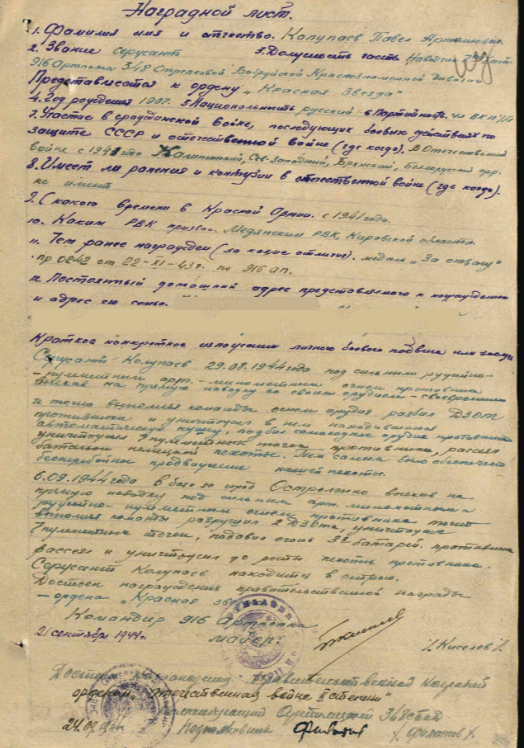 Наградной лист.
1. Фамилия имя и отчество. Колупаев Павел
2. Звание Сержант 3. Должность часть Наводчик
916 Артполка 348 Стрелковой Бобруйской Краснознаменной дивизии
Представляется к ордену „Красная Звезда"
4. Год рождения 1907. 5. Национальность русский 6. Партийность
7. Участие в гражданской войне, последующих боевых действиях по
защите СССР и отечественной войне (где когда). В Отечественной
войне с 1941 года Калининский, Сев-западный, Брянский, Белорусский
8. Имеет ли ранения и контузии в отечественной войне (где когда).
не имеет
9. С какого времени в Красной Армии. с 1941 года.
10. Каким РВК призван. Медянским РВК Кировской области
11. Чем ранее награжден (за какие отличия). медаль „За отвагу"
пр 0242 от 22-XI-43г. по 916 ап.
12. Постоянный домашний адрес представляемого к награждению
и адрес его семьи.
Краткое конкретное изложение личного боевого подвига или заслуг
Сержант Колупаев 29.08.1944 года под сильным ружейно-
-пулеметным арт.-минометным огнем противника
на прямую наводку со своим орудием - своевременно
и точно выполняя команды огнем орудия разбил ДЗОТ
противника и уничтожил в нем находившуюся
автоматическую пушку, подбил самоходное орудие противника
уничтожил пулеметных точек противника, рассеял
батальон немецкой пехоты. Тем самым было обеспечено
беспрепятное продвижение нашей пехоты.
6.09.1944 года В бою за город Остроленко выехав на
прямую наводку под сильным арт. минометным и
ружейно-пулеметным огнем противника точно
выполняя команды разрушил 2 ДЗОТа, уничтожил
пулеметные точки, подавил огонь батареи противника
рассеял и уничтожил до роты пехоты противника.
Сержант Колупаев находится в строю.
Достоин награждения правительственной награды
- ордена „Красная звезда"
Командир 916 Артполка
майор: /Киселев/.
21 сентября 1944г.
Достоин правительственной награды
орденом „Отечественная война II степени"
Командующий Артиллерией 348 сткд
24.09.44г. Подполковник /Филатов/.